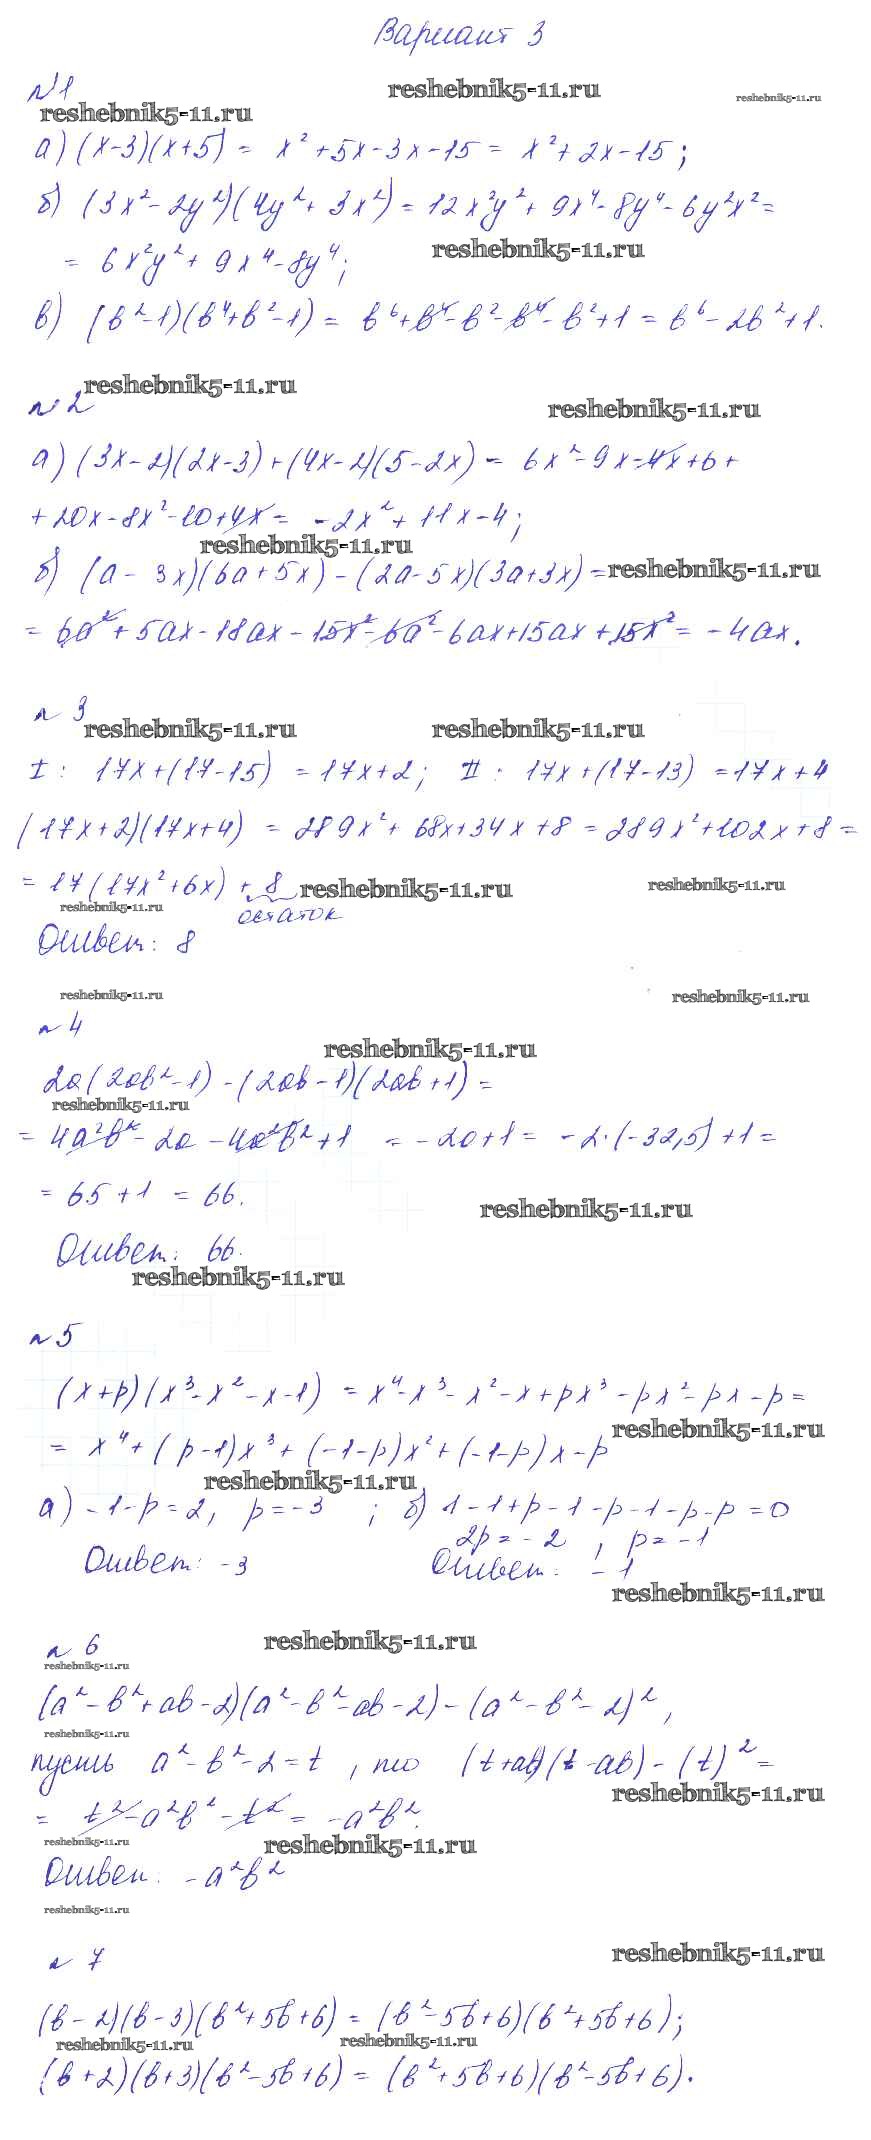 Вариант 3
№1
reshebnik5-11.ru
reshebnik5-11.ru
reshebnik5-11.ru
а) (x-3)(x+5) = x² + 5x - 3x - 15 = x² + 2x - 15;
б) (3x² - 2y²)(4y² + 3x²) = 12x²y² + 9x⁴ - 8y⁴ - 6y²x² =
reshebnik5-11.ru
= 6x²y² + 9x⁴ - 8y⁴;
в) (b² - 1)(b⁴ + b² - 1) = b⁶ + b⁴ - b² - b⁴ - b² + 1 = b⁶ - 2b² + 1.
reshebnik5-11.ru
№2
reshebnik5-11.ru
а) (3x - 2)(2x - 3) + (4x - 2)(5 - 2x) = 6x² - 9x - 4x + 6 +
+ 20x - 8x² - 10 + 4x = -2x² + 11x - 4;
reshebnik5-11.ru
б) (a - 3x)(6a + 5x) - (2a - 5x)(3a + 3x) =
reshebnik5-11.ru
= 6a² + 5ax - 18ax - 15x² - 6a² - 6ax + 15ax + 15x² = -4ax.
№3
reshebnik5-11.ru
reshebnik5-11.ru
I : 17x + (17-15) = 17x + 2; II : 17x + (17-13) = 17x + 4
(17x + 2)(17x + 4) = 289x² + 68x + 34x + 8 = 289x² + 102x + 8 =
= 17(17x² + 6x) + 8
reshebnik5-11.ru
reshebnik5-11.ru
reshebnik5-11.ru
остаток
Ответ: 8
reshebnik5-11.ru
reshebnik5-11.ru
№4
reshebnik5-11.ru
2a(2ab² - 1) - (2ab - 1)(2ab + 1) =
reshebnik5-11.ru
= 4a²b² - 2a - 4a²b² + 1 = -2a + 1 = -2·(-32,5) + 1 =
= 65 + 1 = 66.
reshebnik5-11.ru
Ответ: 66.
reshebnik5-11.ru
№5
(x + p)(x³ - x² - x - 1) = x⁴ - x³ - x² - x + px³ - px² - px - p =
reshebnik5-11.ru
= x⁴ + (p-1)x³ + (-1-p)x² + (-1-p)x - p
reshebnik5-11.ru
а) -1-p = 2, p = -3 ; б) 1 - 1 + p - 1 - p - 1 - p - p = 0
2p = -2 , p = -1
Ответ: -3
Ответ: -1
reshebnik5-11.ru
№6
reshebnik5-11.ru
reshebnik5-11.ru
(a² - b² + ab - 2)(a² - b² - ab - 2) - (a² - b² - 2)²,
reshebnik5-11.ru
пусть a² - b² - 2 = t , то (t + ab)(t - ab) - (t)² =
reshebnik5-11.ru
= t² - a²b² - t² = -a²b².
reshebnik5-11.ru
reshebnik5-11.ru
Ответ: -a²b²
reshebnik5-11.ru
№7
reshebnik5-11.ru
(b - 2)(b - 3)(b² + 5b + 6) = (b² - 5b + 6)(b² + 5b + 6);
reshebnik5-11.ru
reshebnik5-11.ru
(b + 2)(b + 3)(b² - 5b + 6) = (b² + 5b + 6)(b² - 5b + 6).